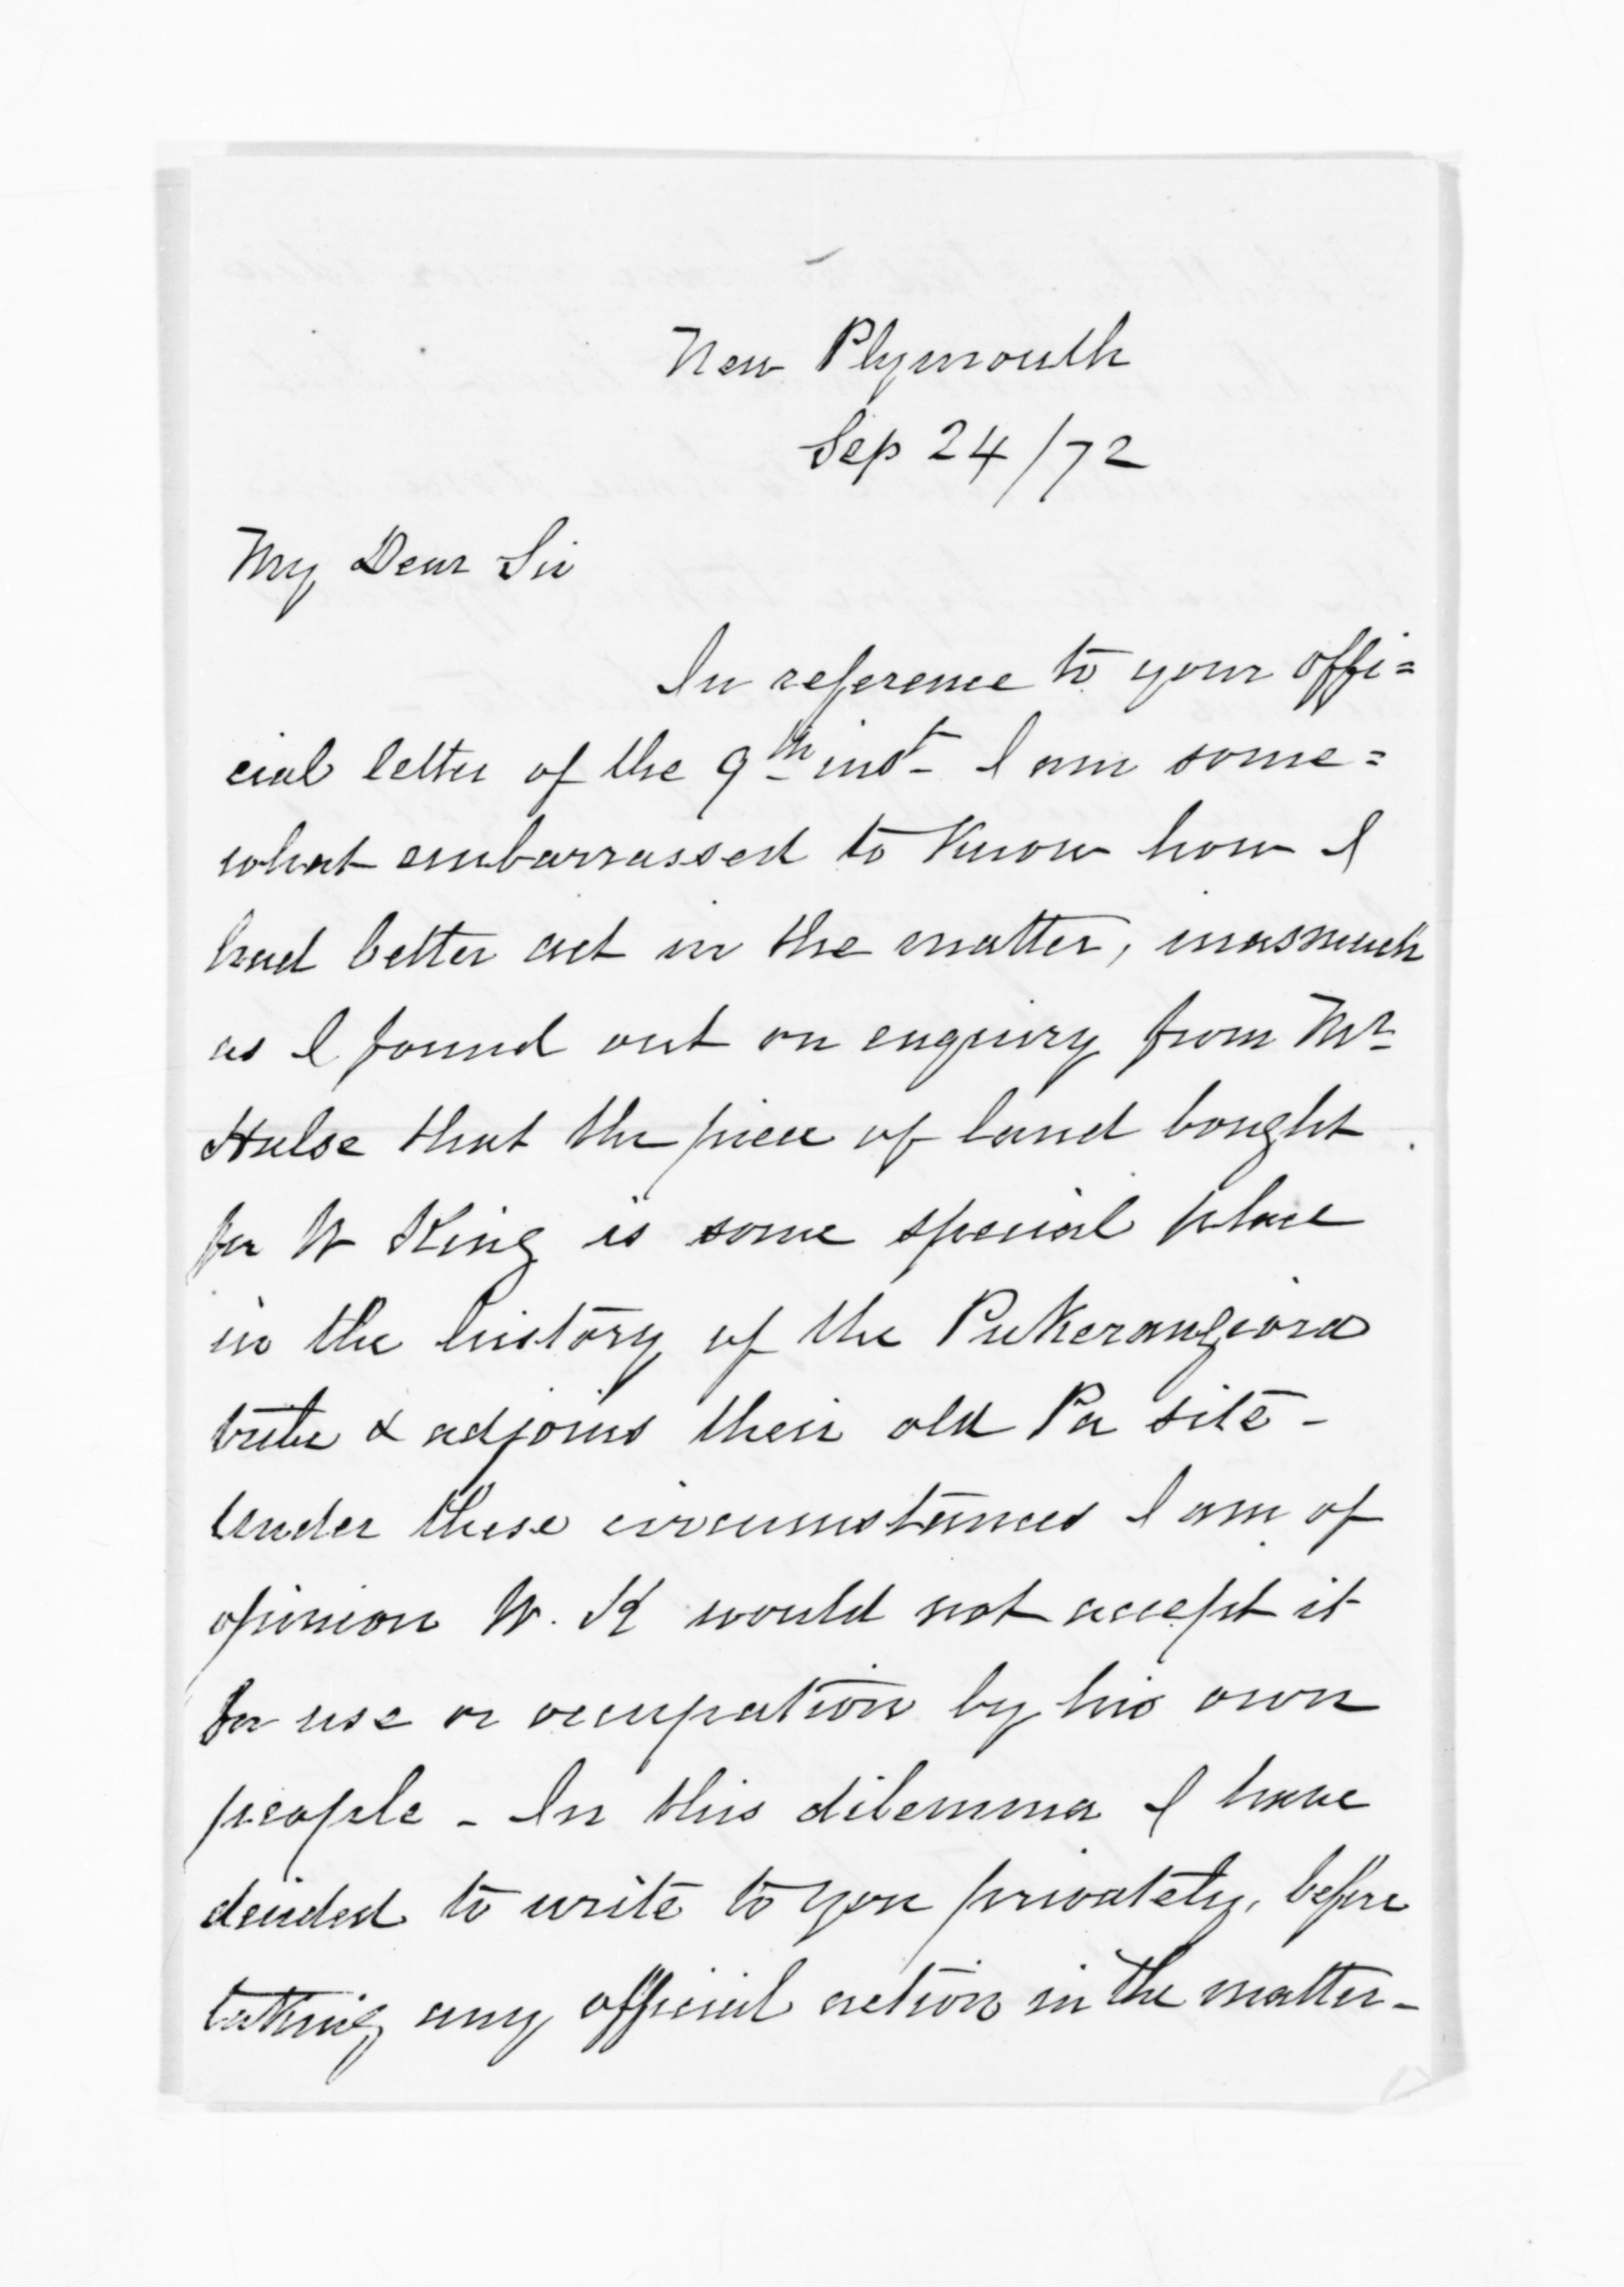 New Plymouth
Sep 24/72
My Dear Sir
In reference to your offi=
cial letter of the 9th inst I am some=
what embarrassed to know how I
had better act in the matter, inasmuch
as I found out on enquiry from Mr
Hulse that the piece of land bought
for W King is some special place
in the history of the Pukerangiora
tribe & adjoins their old Pa site -
Under these circumstances I am of
opinion W. K would not accept it
for use or occupation by his own
people - In this dilemma I have
decided to write to you privately, before
taking any official action in the matter -